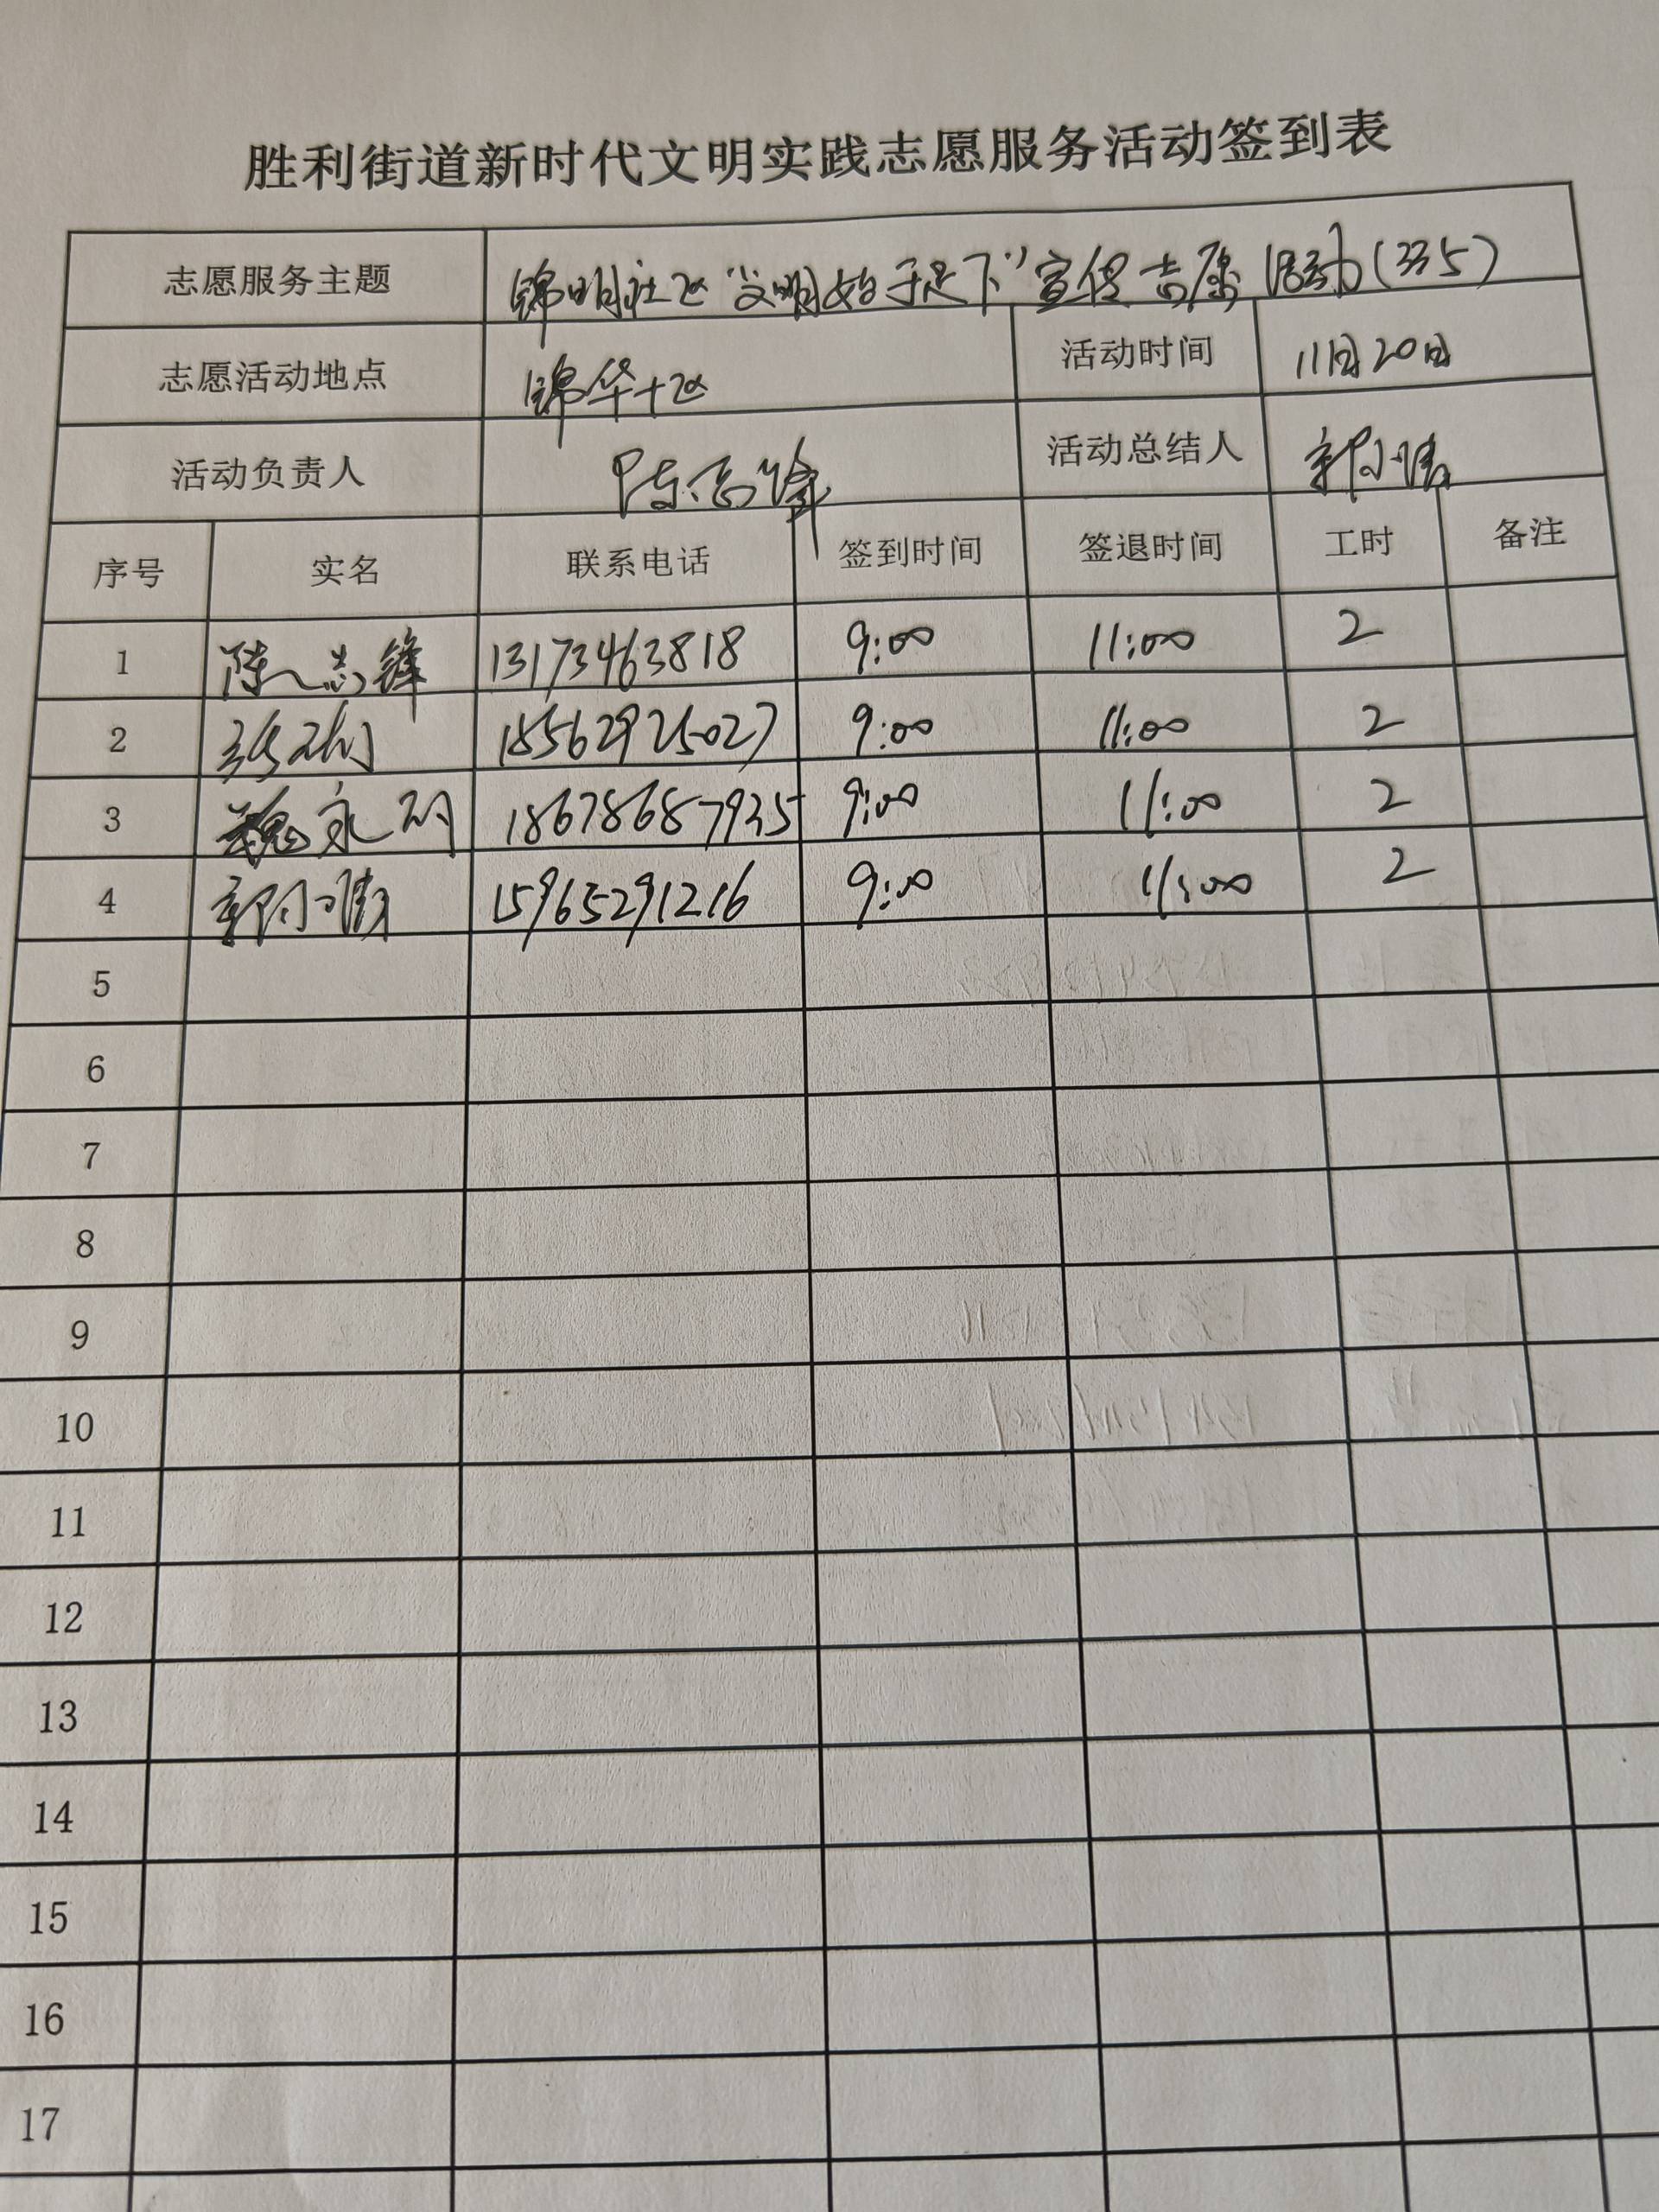 胜利街道新时代文明实践志愿服务活动签到表
志愿服务主题 锦明社区“文明始于足下”宣传志愿活动(335)
志愿活动地点 锦华十区 活动时间 11月20日
活动负责人 陈志锋 活动总结人 郭小倩
序号 实名 联系电话 签到时间 签退时间 工时 备注
1 陈志锋 13173463818 9:00 11:00 2
2 18562925027 9:00 11:00 2
3 魏永 18678687935 9:00 11:00 2
4 郭小倩 15965291216 9:00 11:00 2
5
6
7
8
9
10
11
12
13
14
15
16
17